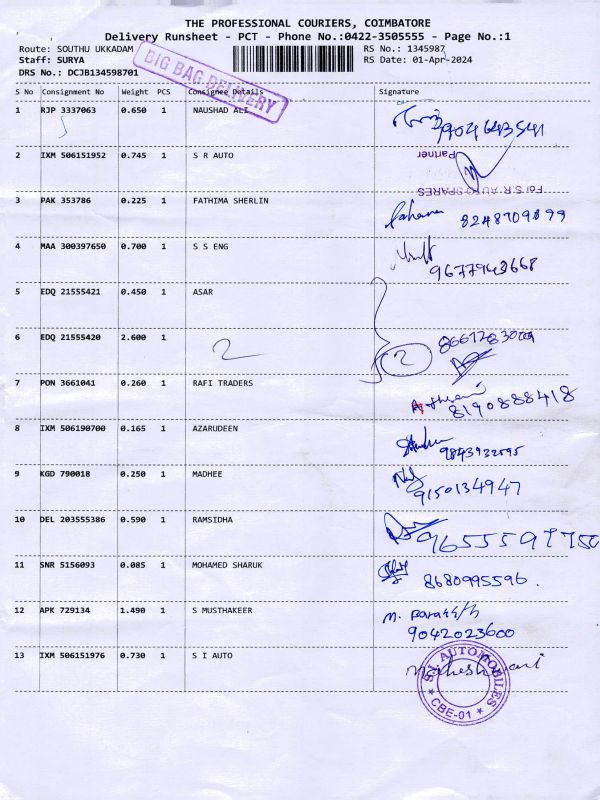 THE PROFESSIONAL COURIERS, COIMBATORE
Delivery Runsheet - PCT - Phone No.:0422-3505555 - Page No.:1
Route: SOUTHU UKKADAM
RS No.: 1345987
Staff: SURYA
RS Date: 01-Apr-2024
DRS No.: DCJB134598701
BIG BAG DELIVERY
S No Consignment No Weight PCS Consignee Details Signature
1 RJP 3337063 0.650 1 NAUSHAD ALI
2 IXM 506151952 0.745 1 S R AUTO
Partner
For S.R. AUTO SPARES
3 PAK 353786 0.225 1 FATHIMA SHERLIN
8248709899
4 MAA 300397650 0.700 1 S S ENG
9677943668
5 EDQ 21555421 0.450 1 ASAR
6 EDQ 21555420 2.600 1 2 2
7 PON 3661041 0.260 1 RAFI TRADERS
8190888418
8 IXM 506190700 0.165 1 AZARUDEEN
9843932595
9 KGD 790018 0.250 1 MADHEE
9150134947
10 DEL 203555386 0.590 1 RAMSIDHA
11 SNR 5156093 0.085 1 MOHAMED SHARUK
8680995596.
12 APK 729134 1.490 1 S MUSTHAKEER
9042023600
13 IXM 506151976 0.730 1 S I AUTO
Maheshwari
AUTOMOBILES
CBE-01